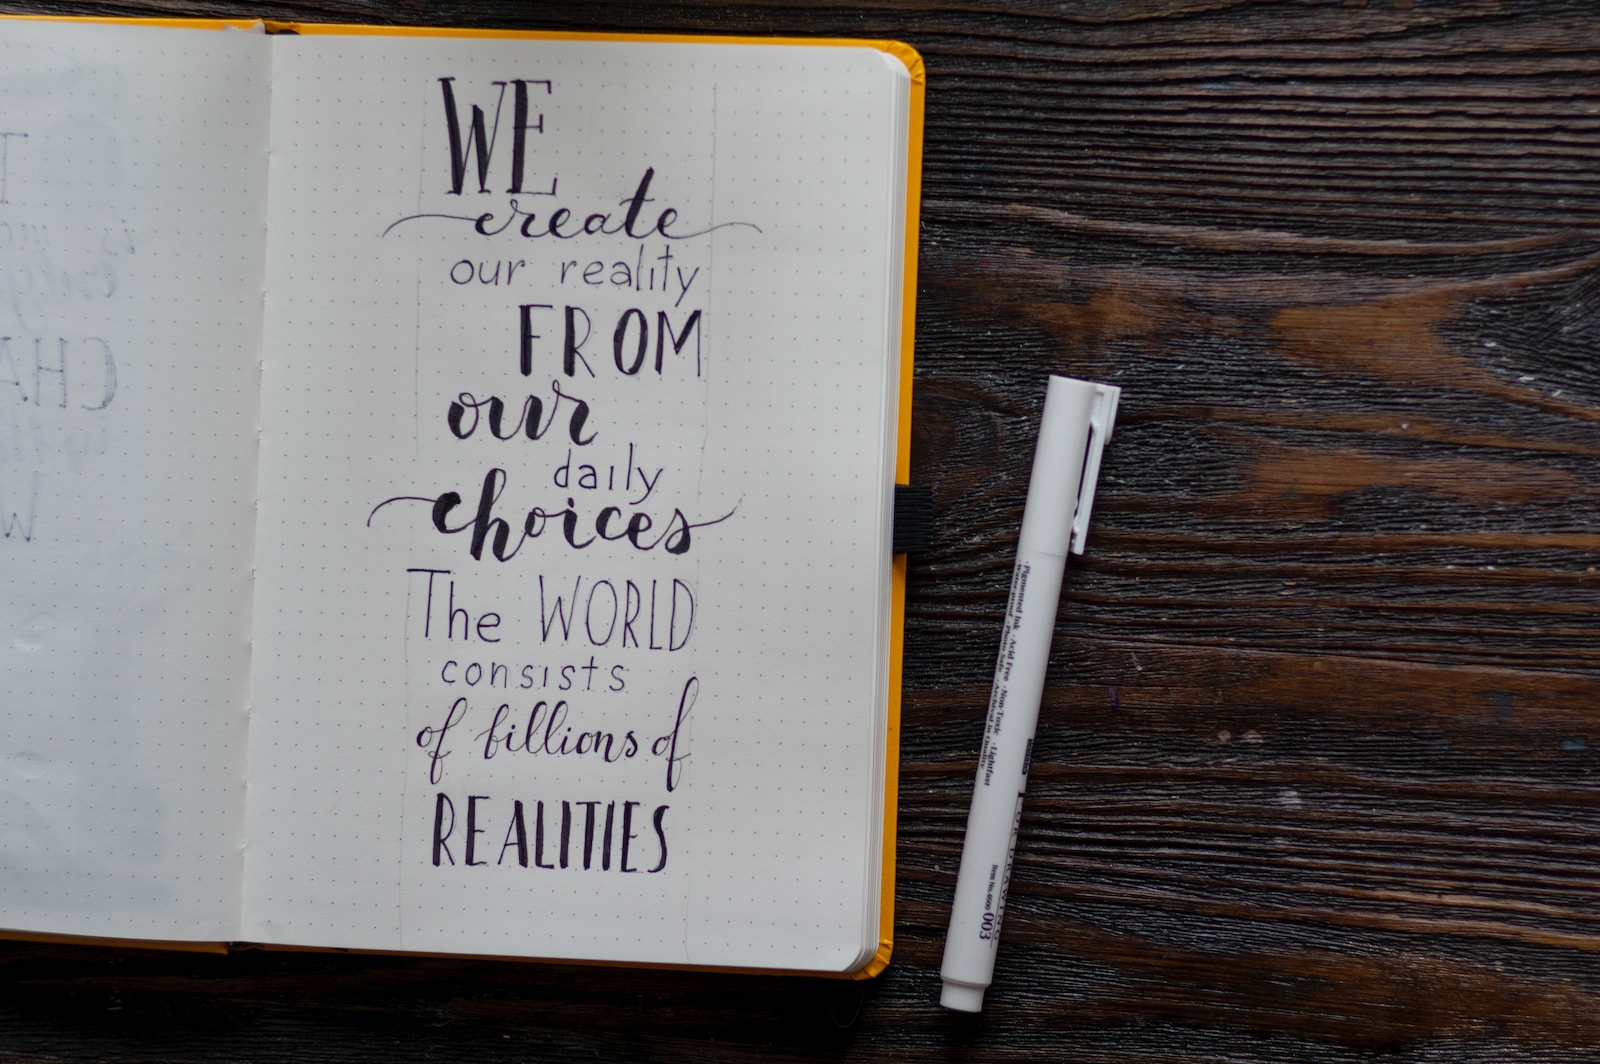 WE
create
our reality
FROM
our
daily
choices
The WORLD
consists
of billions of
REALITIES
· Pigmented Ink · Acid Free · Non Toxic · Lightfast
Waterproof · Photo Safe · Archival in Quality.
FOR DRAWING
Item No.4600 003